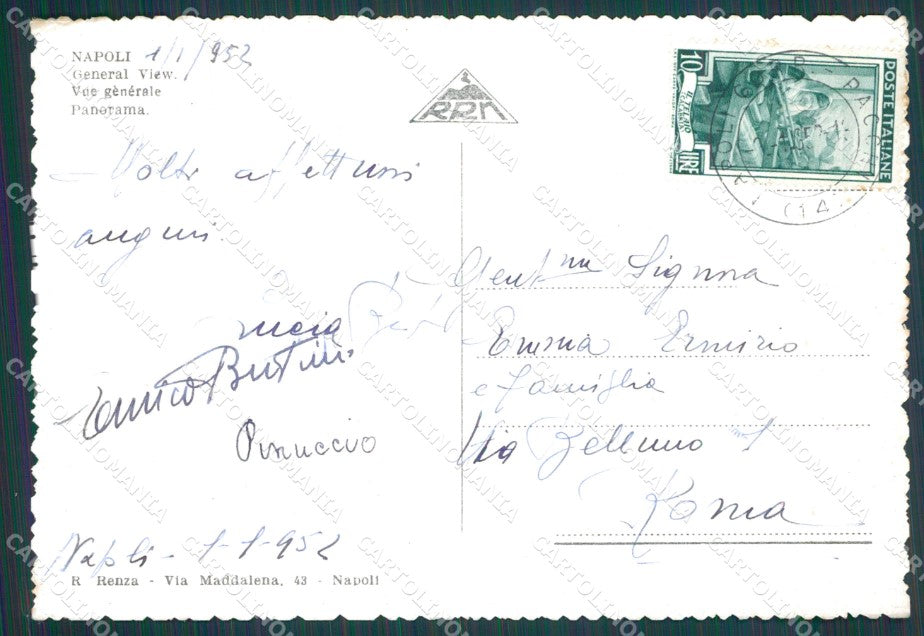 NAPOLI 1/1/952
General View.
Vue gènérale
Panorama.
RRN
POSTE ITALIANE
10
LIRE
IL TELAIO
PACCHI
(14)
- Molti affettuosi
auguri.
Enrico
Pinuccio
Napoli - 1-1-952
R Renza - Via Maddalena, 43 - Napoli
Gent ma Signora
Emma Ermirio
e famiglia
Via Belluno 1
Roma
CARTOLINOMANIA